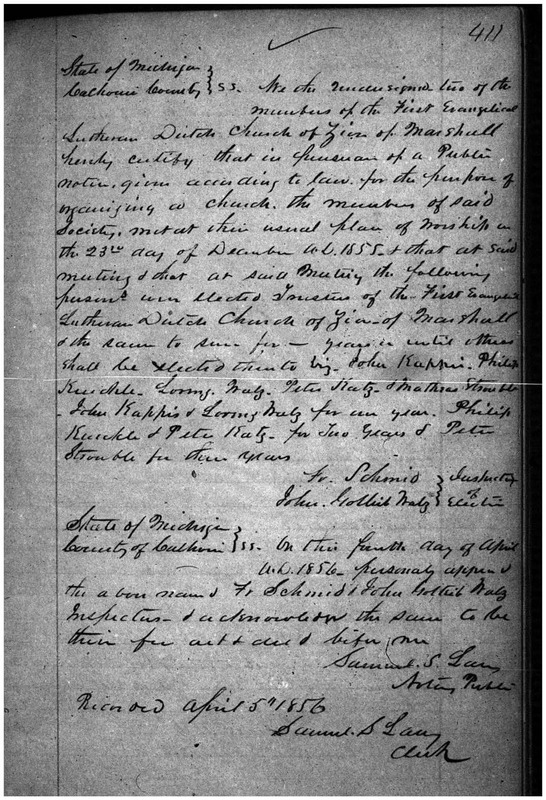 411
State of Michigan
Calhoun County } S.S. We the undersigned two of the
members of the First Evangelical
Lutheran Dutch Church of Zion of Marshall
hereby certify that in pursuan of a Public
notice, given according to law for the purpose of
organizing a church. the members of said
Society, met at their usual place of Worship on
the 23rd day of December A.D. 1855 & that at said
meeting & that at said Meeting the following
persons were elected Trustees of the First Evangel
Lutheran Dutch Church of Zion of Marshall
& the same to serve for — years or until others
shall be elected viz. John Kappis. Philip
Kuckle. Loring Walz. Peter Katz & Mathias Strouble
- John Kappis & Loring Walz for one year. Philip
Kuckle & Peter Katz - for Two Years & Peter
Strouble for three years
Fr. Schmid } Inspectors
John. Gottlieb Walz } of Election
State of Michigan
County of Calhoun } ss. On this fourth day of April
A.D. 1856 - personaly appeard
the above named Fr Schmid & John Gottlieb Walz
Inspectors & acknowledge the same to be
their free act & deed before me
Samuel. S. Lacy
Notary Public
Recorded April 5th 1856
Samuel. S Lacy
Clerk